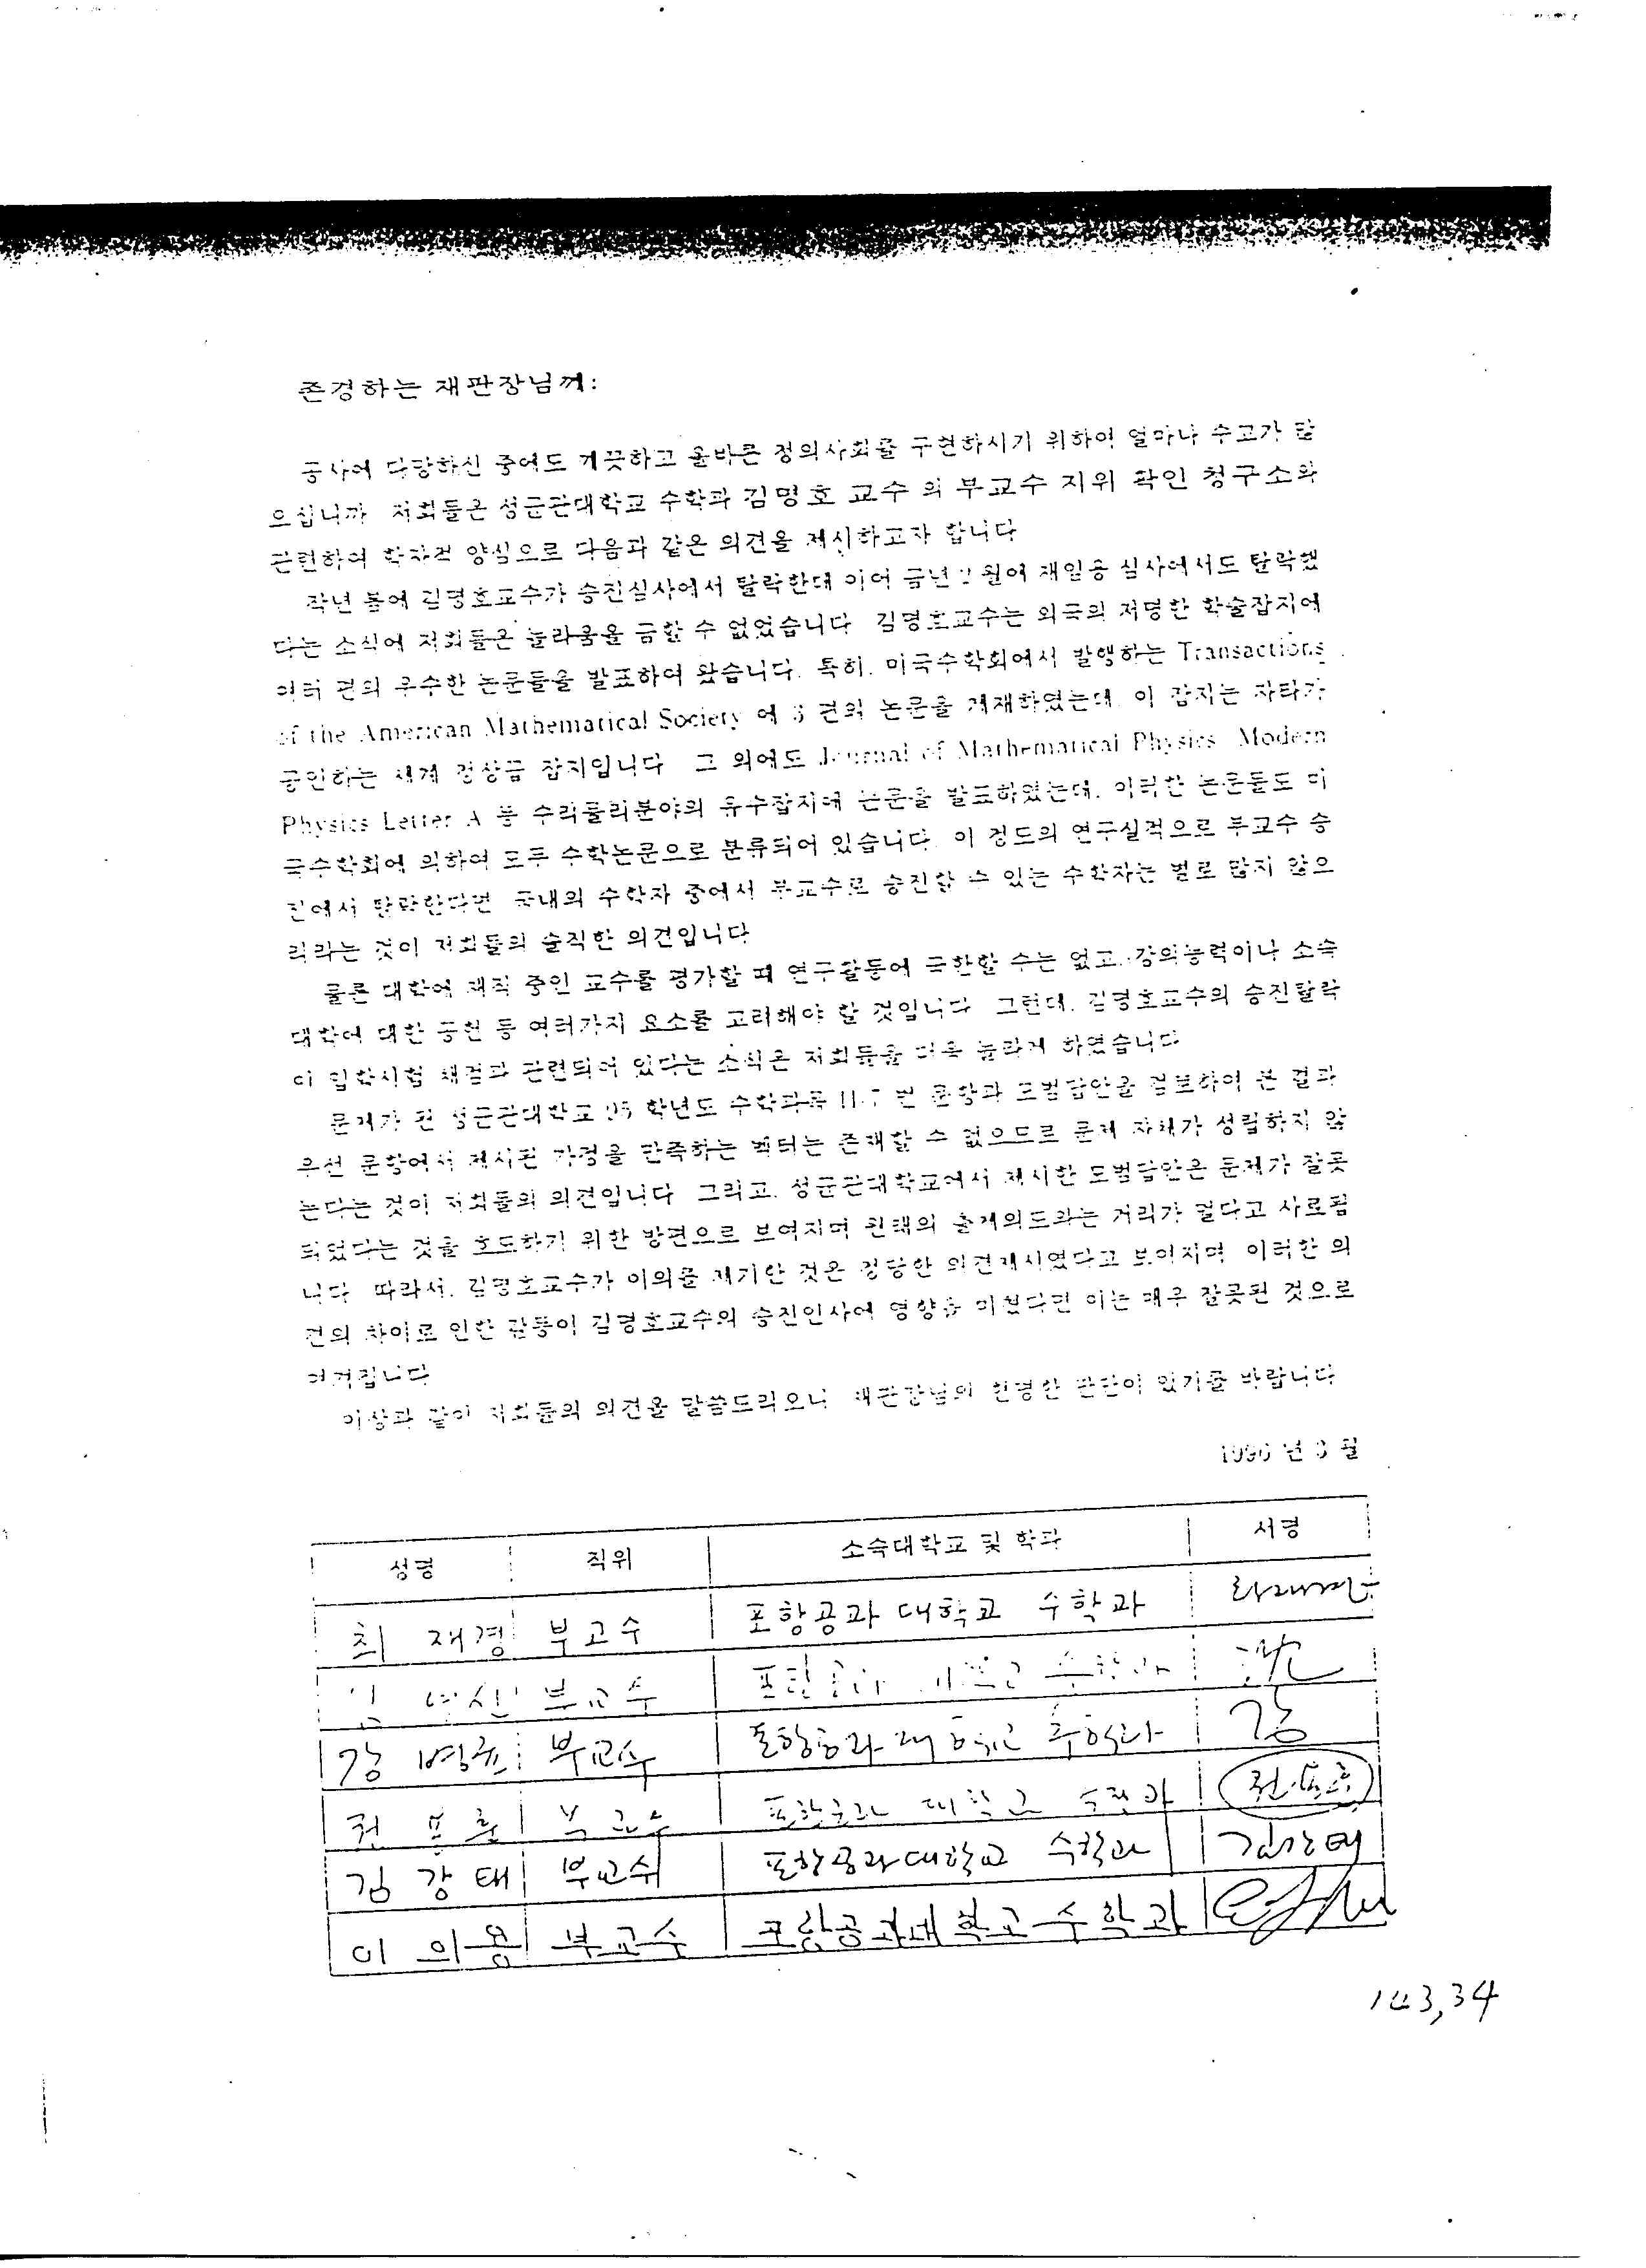 존경하는 재판장님께:
공사에 다망하신 중에도 깨끗하고 올바른 정의사회를 구현하시기 위하여 얼마나 수고가 많
으십니까 저희들은 성균관대학교 수학과 김명호 교수 의 부교수 지위 확인 청구소와
관련하여 학자적 양심으로 다음과 같은 의견을 제시하고자 합니다
작년 봄에 김명호교수가 승진심사에서 탈락한데 이어 금년 2 월에 재임용 심사에서도 탈락했
다는 소식에 저희들은 놀라움을 금할 수 없었습니다 김명호교수는 외국의 저명한 학술잡지에
여러 편의 우수한 논문들을 발표하여 왔습니다. 특히, 미국수학회에서 발행하는 Transactions
of the American Mathematical Society 에 3 편의 논문을 게재하였는데, 이 잡지는 자타가
공인하는 세계 정상급 잡지입니다 그 외에도 Journal of Mathematical Physics Modern
Physics Letter A 등 수리물리분야의 유수잡지에 논문을 발표하였는데, 이러한 논문들도 미
국수학회에 의하여 모두 수학논문으로 분류되어 있습니다. 이 정도의 연구실적으로 부교수 승
진에서 탈락한다면 국내의 수학자 중에서 부교수로 승진할 수 있는 수학자는 별로 많지 않으
리라는 것이 저희들의 솔직한 의견입니다
물론 대학에 재직 중인 교수를 평가할 때 연구활동에 국한할 수는 없고, 강의능력이나 소속
대학에 대한 공헌 등 여러가지 요소를 고려해야 할 것입니다 그런데, 김명호교수의 승진탈락
이 입학시험 채점과 관련되어 있다는 소식은 저희들을 더욱 놀라게 하였습니다
문제가 된 성균관대학교 95 학년도 수학과목 II-7 번 문항과 모범답안을 검토하여 본 결과
우선 문항에서 제시된 가정을 만족하는 벡터는 존재할 수 없으므로 문제 자체가 성립하지 않
는다는 것이 저희들의 의견입니다 그리고, 성균관대학교에서 제시한 모범답안은 문제가 잘못
되었다는 것을 호도하기 위한 방편으로 보여지며 원래의 출제의도와는 거리가 멀다고 사료됩
니다 따라서, 김명호교수가 이의를 제기한 것은 정당한 의견제시였다고 보여지며 이러한 의
견의 차이로 인한 갈등이 김명호교수의 승진인사에 영향을 미쳤다면 이는 매우 잘못된 것으로
여겨집니다
이상과 같이 저희들의 의견을 말씀드리오니 재판장님의 현명한 판단이 있기를 바랍니다
1996 년 3 월
성명 직위 소속대학교 및 학과 서명
최 재경 부교수 포항공과 대학교 수학과
부교수 포항공과 대학교 수학과
강 병균 부교수 포항공과 대학교 수학과 강
권 부교수 포항공과 대학교 수학과
김 강 태 부교수 포항공과대학교 수학과 김강태
이 의 용 부교수 포항공과대학교 수학과
143,34